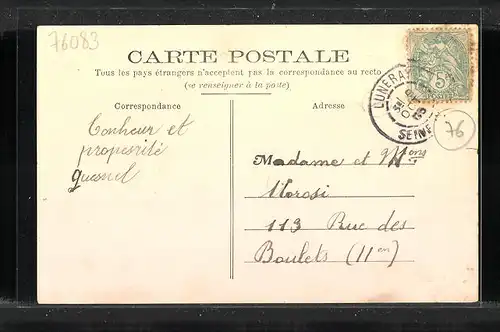 76083
CARTE POSTALE
Tous les pays étrangers n'acceptent pas la correspondance au recto
(se renseigner à la poste)
Correspondance
Adresse
LUNERAY
SEINE
5
76
Bonheur et
propesrité
Quesnel
Madame et Mons
Morosi
113 Rue des
Boulets (11en)